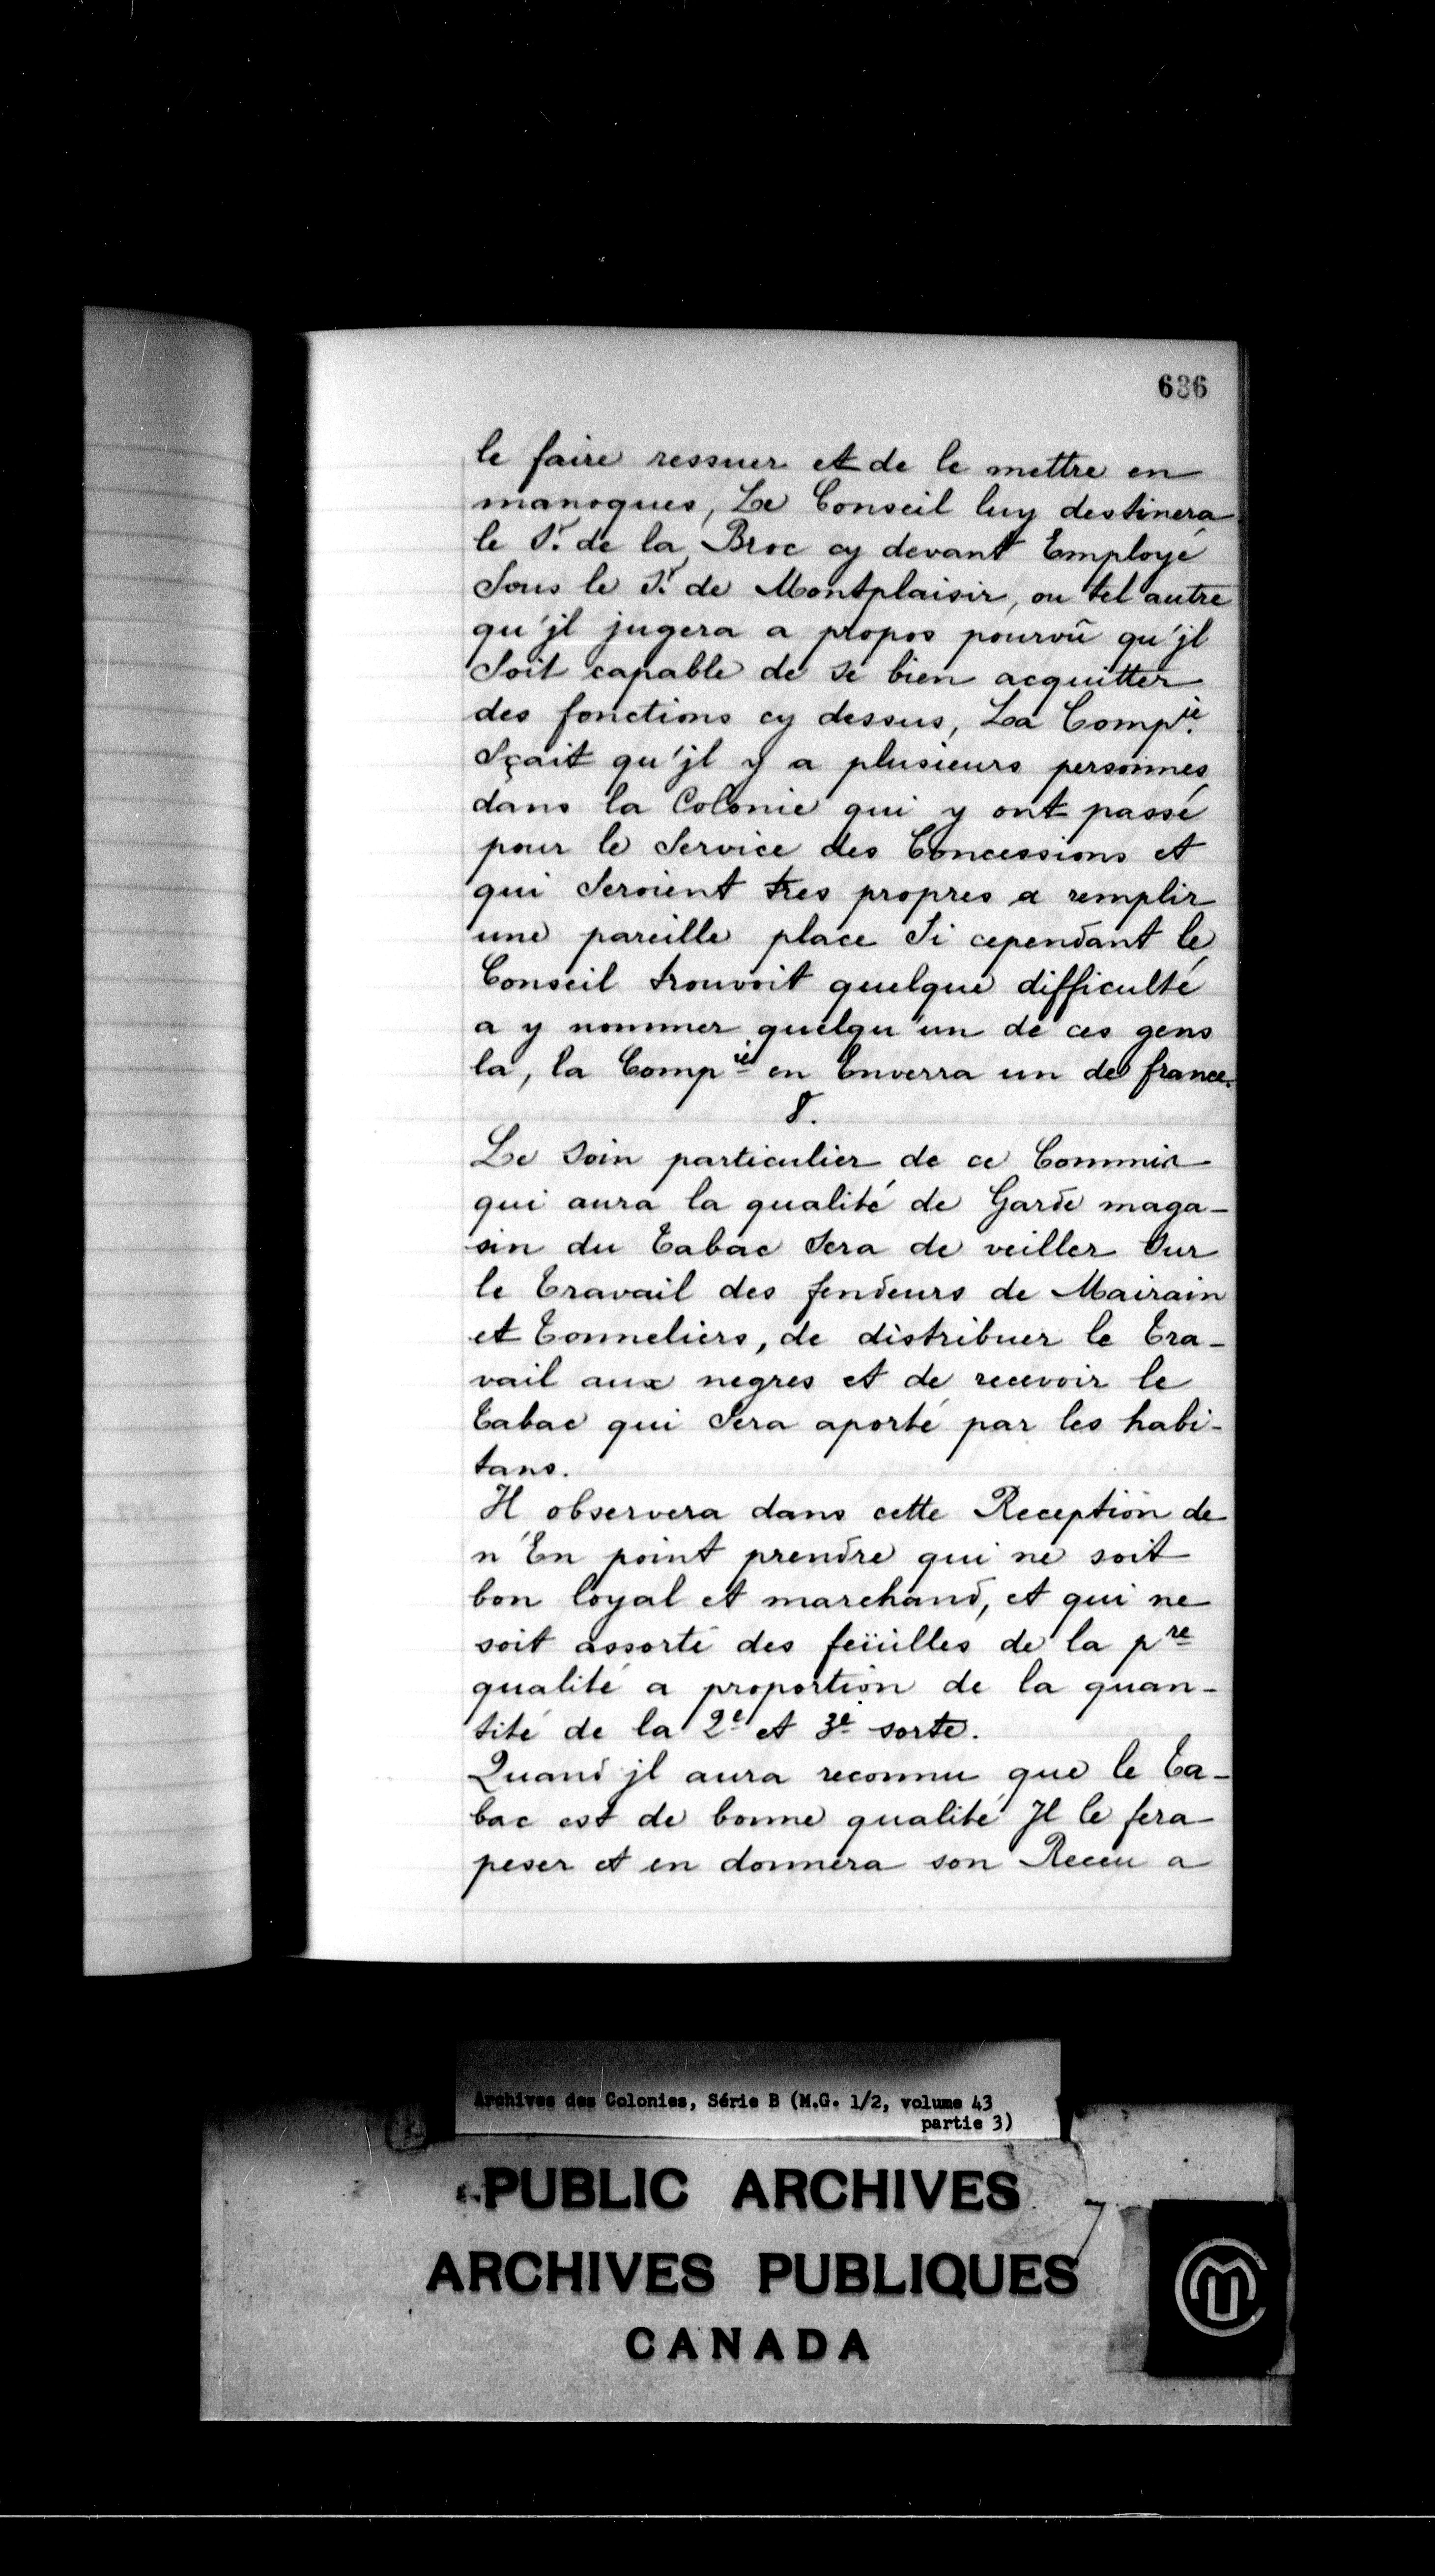 636
le faire ressuer et de le mettre en
manoques, Le Conseil luy destinera
le Sr. de la Broc cy devant Employé
Sous le Sr. de Montplaisir, ou tel autre
qu'jl jugera a propos pourvû qu'jl
Soit capable de se bien acquitter
des fonctions cy dessus, La Compie.
Sçait qu'jl y a plusieurs personnes
dans la Colonie qui y ont passé
pour le Service des Concessions et
qui Seroient tres propres a remplir
une pareille place Si cependant le
Conseil trouvoit quelque difficulté
a y nommer quelqu'un de ces gens
la, la Compie en Enverra un de france.
8.
Le Soin particulier de ce Commis
qui aura la qualité de Garde maga-
sin du Tabac Sera de veiller Sur
le Travail des fendeurs de Mairain
et Tonneliers, de distribuer le Tra-
vail aux negres et de recevoir le
Tabac qui Sera aporté par les habi-
tans.
Il observera dans cette Reception de
n'En point prendre qui ne soit
bon loyal et marchand, et qui ne
soit assorté des feüilles de la pre
qualité a proportion de la quan-
tité de la 2e et 3e sorte.
Quand jl aura reconnu que le Ta-
bac est de bonne qualité Jl le fera
peser et en donnera son Receu a
Archives des Colonies, Série B (M.G. 1/2, volume 43
partie 3)
PUBLIC ARCHIVES
ARCHIVES PUBLIQUES
CANADA